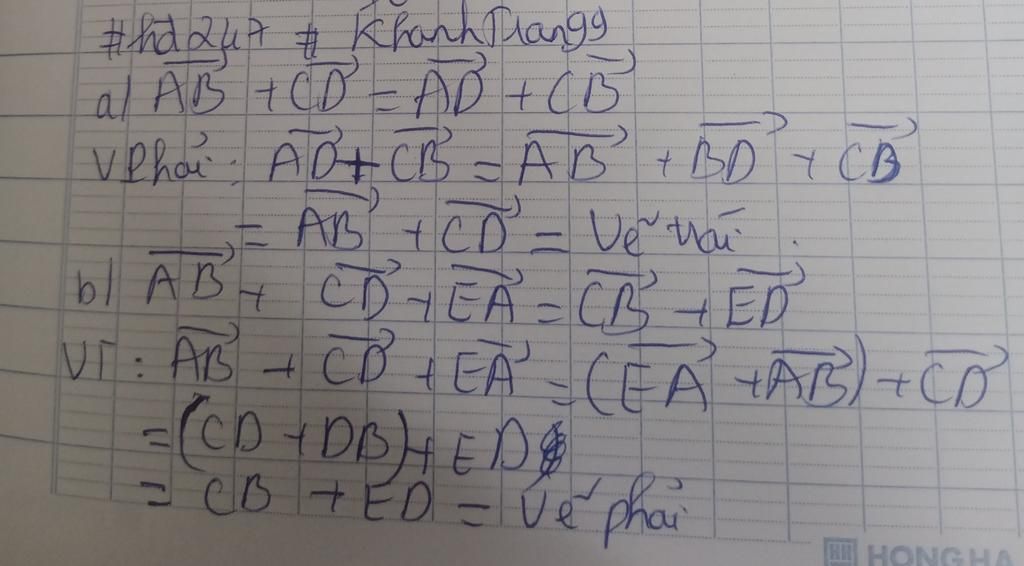 #hd247 # KhanhTuan99
a) AB⃗ + CD⃗ = AD⃗ + CB⃗
VPhải: AD⃗ + CB⃗ = AB⃗ + BD⃗ + CB⃗
= AB⃗ + CD⃗ = Vế trái.
b) AB⃗ + CD⃗ + EA⃗ = CB⃗ + ED⃗
VT: AB⃗ + CD⃗ + EA⃗ = (EA⃗ + AB⃗) + CD⃗
= (CD + DB) + ED
= CB + ED = Vế phải
HONG HA